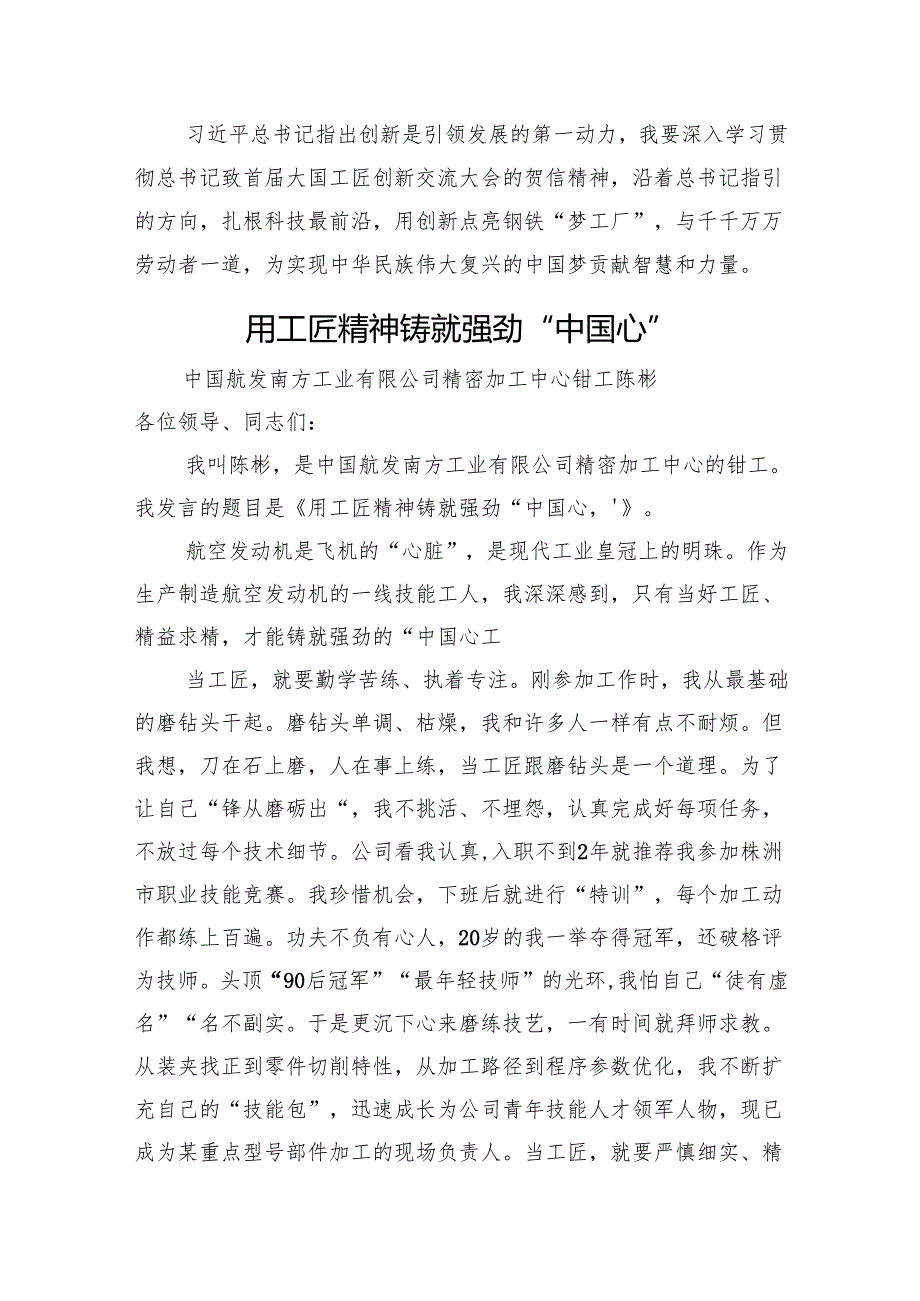 习近平总书记指出创新是引领发展的第一动力，我要深入学习贯
彻总书记致首届大国工匠创新交流大会的贺信精神，沿着总书记指引
的方向，扎根科技最前沿，用创新点亮钢铁“梦工厂”，与千千万万
劳动者一道，为实现中华民族伟大复兴的中国梦贡献智慧和力量。
用工匠精神铸就强劲“中国心”
中国航发南方工业有限公司精密加工中心钳工陈彬
各位领导、同志们：
我叫陈彬，是中国航发南方工业有限公司精密加工中心的钳工。
我发言的题目是《用工匠精神铸就强劲“中国心，'》。
航空发动机是飞机的“心脏”，是现代工业皇冠上的明珠。作为
生产制造航空发动机的一线技能工人，我深深感到，只有当好工匠、
精益求精，才能铸就强劲的“中国心工
当工匠，就要勤学苦练、执着专注。刚参加工作时，我从最基础
的磨钻头干起。磨钻头单调、枯燥，我和许多人一样有点不耐烦。但
我想，刀在石上磨，人在事上练，当工匠跟磨钻头是一个道理。为了
让自己“锋从磨砺出“，我不挑活、不埋怨，认真完成好每项任务，
不放过每个技术细节。公司看我认真,入职不到2年就推荐我参加株洲
市职业技能竞赛。我珍惜机会，下班后就进行“特训”，每个加工动
作都练上百遍。功夫不负有心人，20岁的我一举夺得冠军，还破格评
为技师。头顶“90后冠军”“最年轻技师”的光环,我怕自己“徒有虚
名”“名不副实。于是更沉下心来磨练技艺，一有时间就拜师求教。
从装夹找正到零件切削特性，从加工路径到程序参数优化，我不断扩
充自己的“技能包”，迅速成长为公司青年技能人才领军人物，现已
成为某重点型号部件加工的现场负责人。当工匠，就要严慎细实、精